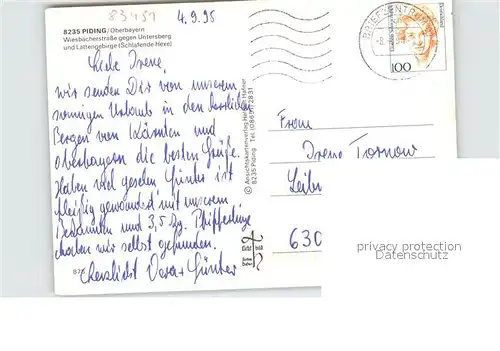 83451
4.9.95
8235 PIDING/Oberbayern
Wiesbacherstraße gegen Untersberg
und Lattengebirge (Schlafende Hexe)
Liebe Irene,
wir senden Dir von unserem
sonnigen Urlaub in den herrlichen
Bergen von Kärnten und
Oberbayern die besten Grüße.
Haben viel gesehen, Günter ist
fleißig gewandert mit unserem
Bekannten und 3,5 kg. Pfifferlinge
haben wir selbst gefunden.
Herzlichst Dora + Günter
© Ansichtskartenverlag Hafner
8235 Piding Tel. (08651) 2831
BRIEFZENTRUM
100
Frau
Irene Tornow
Leibn
630
privacy protection
Datenschutz